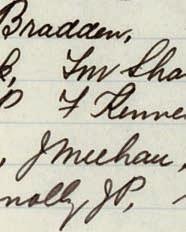 Bradden,
Tm Sha
P F Kenne
, J Meehan,
nolly JP,